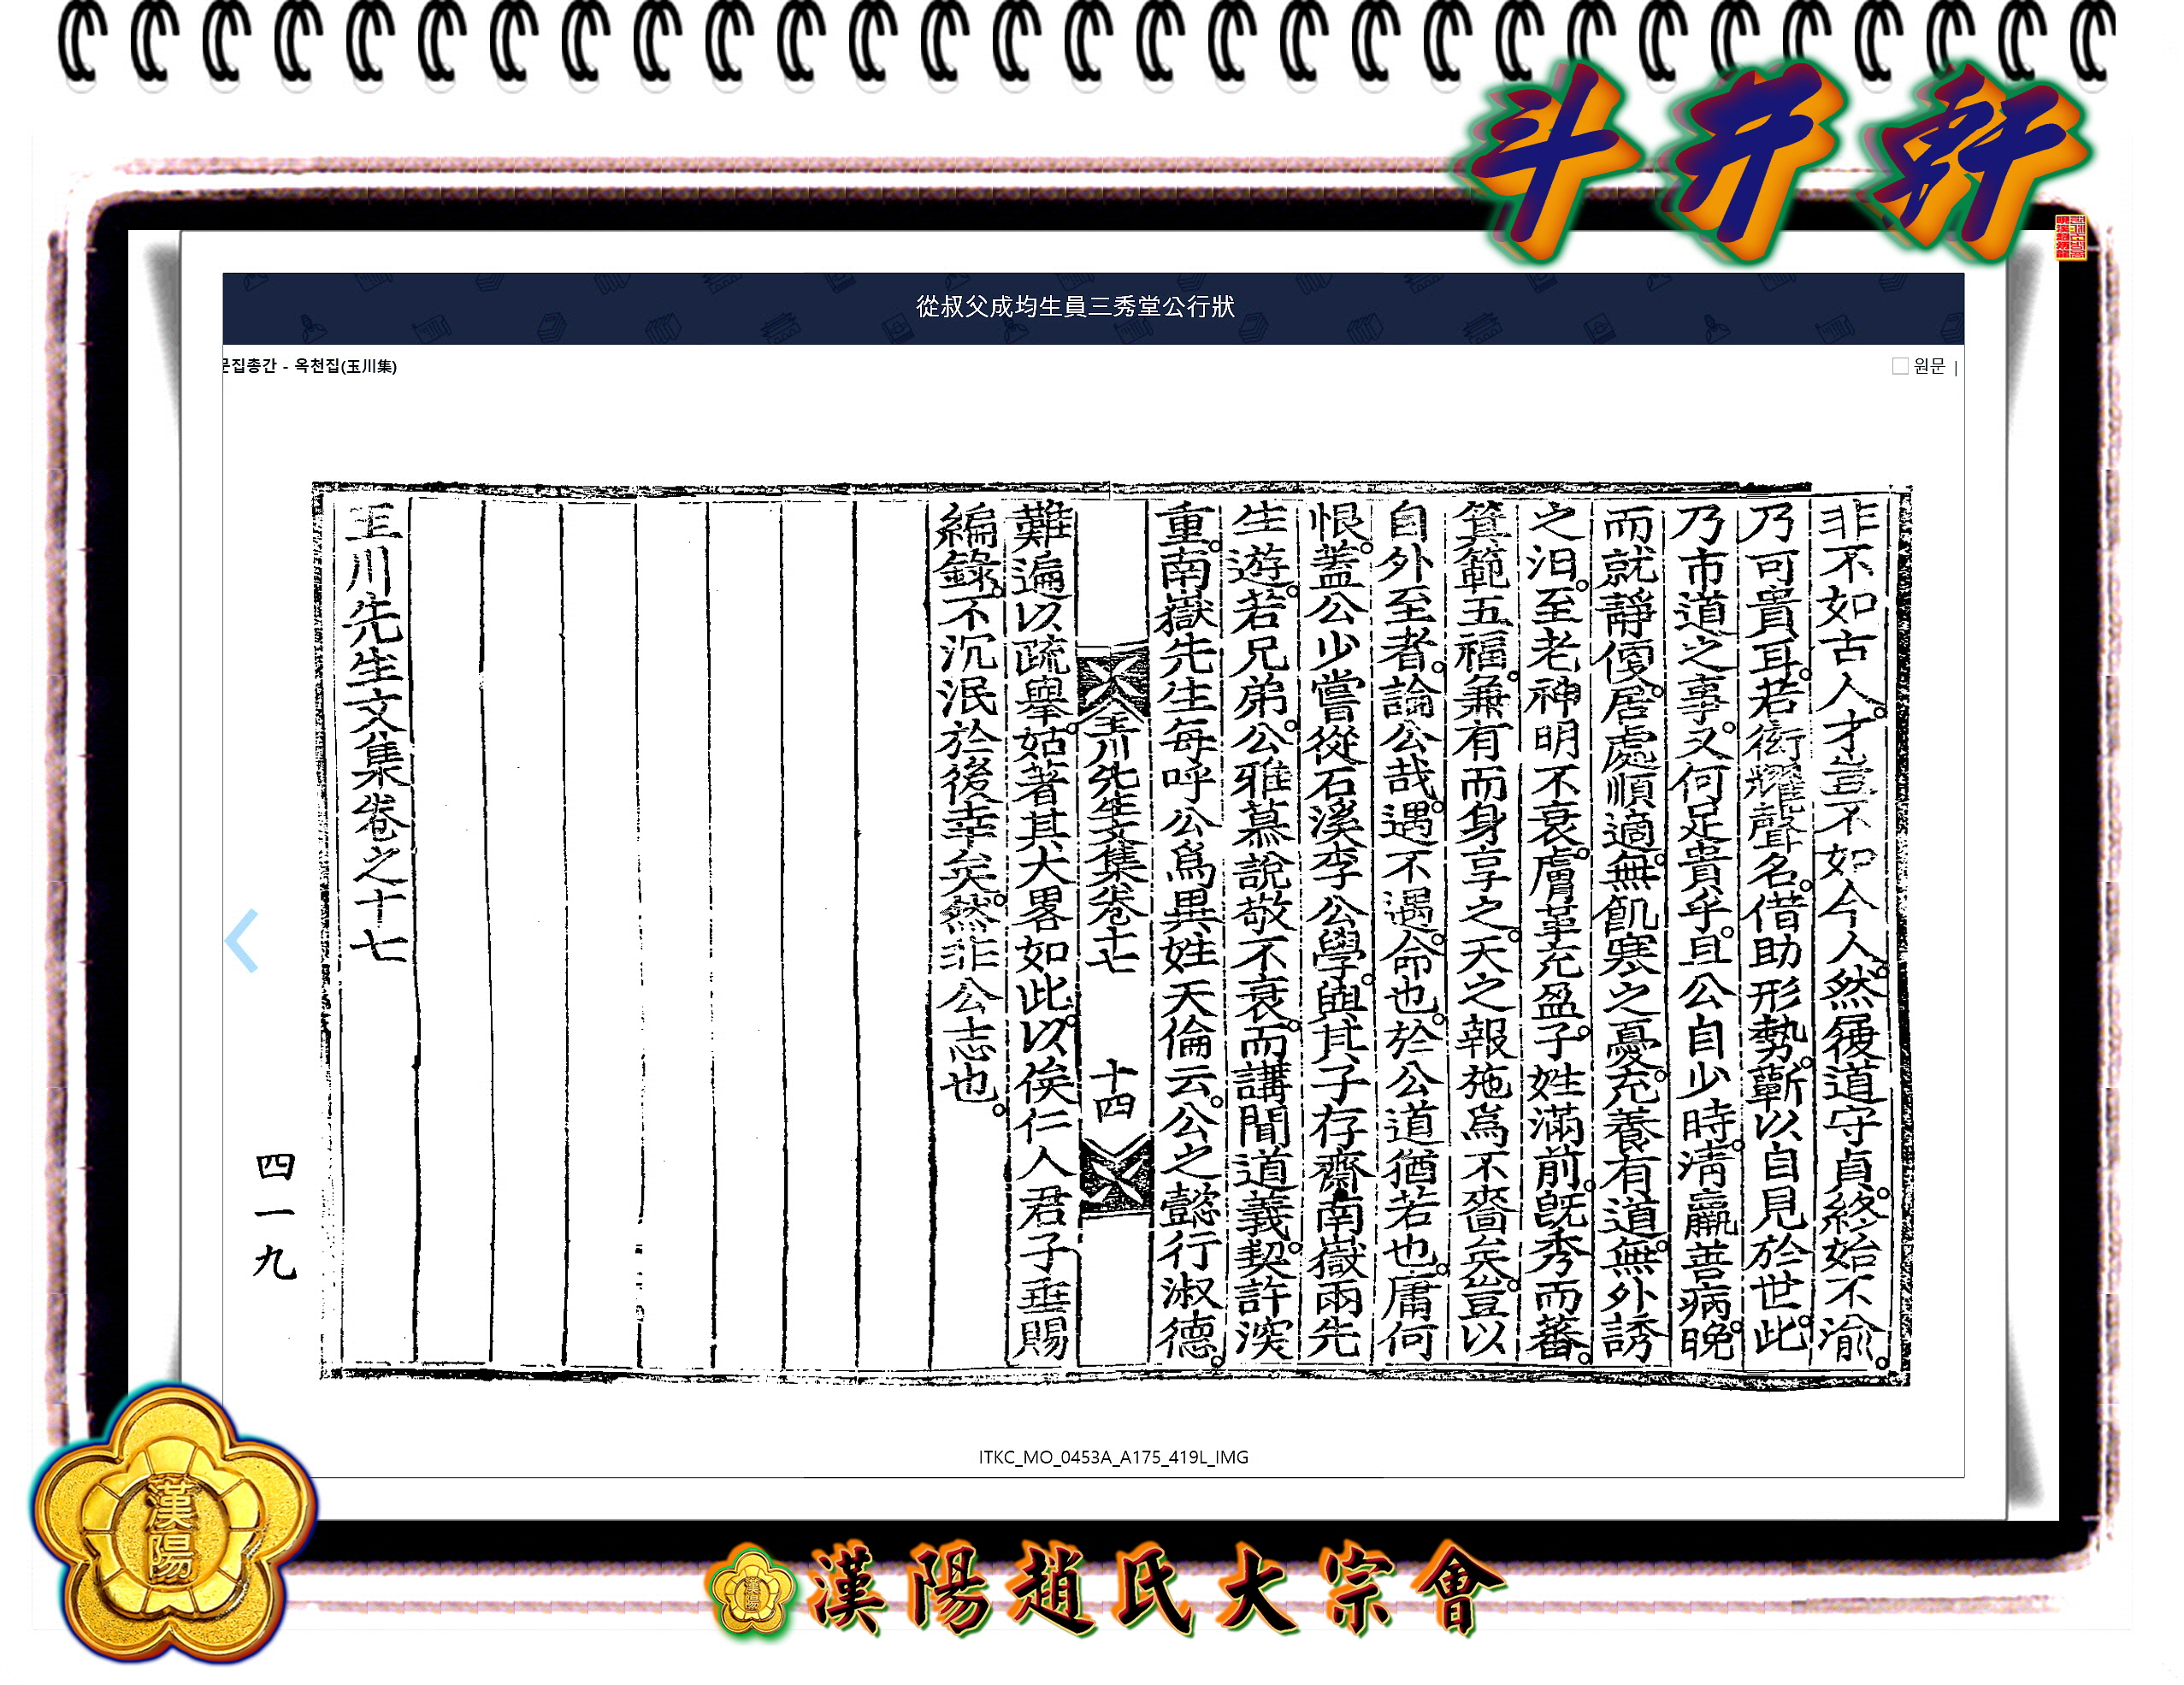 斗井軒
從叔父成均生員三秀堂公行狀
문집총간 - 옥천집(玉川集)
원문 |
非不如古人。才豈不如今人。然履道守貞。終始不渝。
乃可貴耳。若衒耀聲名。借助形勢。蘄以自見於世。此
乃市道之事。又何足貴乎。且公自少時。淸羸善病。晩
而就靜便。居處順適。無飢寒之憂。充養有道。無外誘
之汨。至老神明不衰。膚革充盈。子姓滿前。旣秀而蕃。
箕範五福。兼有而身享之。天之報施爲不嗇矣。豈以
自外至者。論公哉。遇不遇。命也。於公道猶若也。庸何
恨。蓋公少嘗從石溪李公學。與其子存齋南嶽兩先
生遊。若兄弟。公雅慕說敬不衰。而講聞道義。契許深
重。南嶽先生每呼公爲異姓天倫云。公之懿行淑德。
玉川先生文集卷十七 十四
難遍以疏擧。姑著其大畧如此。以俟仁人君子垂賜
編錄。不沉泯於後幸矣。然非公志也。
玉川先生文集卷之十七
四一九
ITKC_MO_0453A_A175_419L_IMG
漢陽
漢陽趙氏大宗會